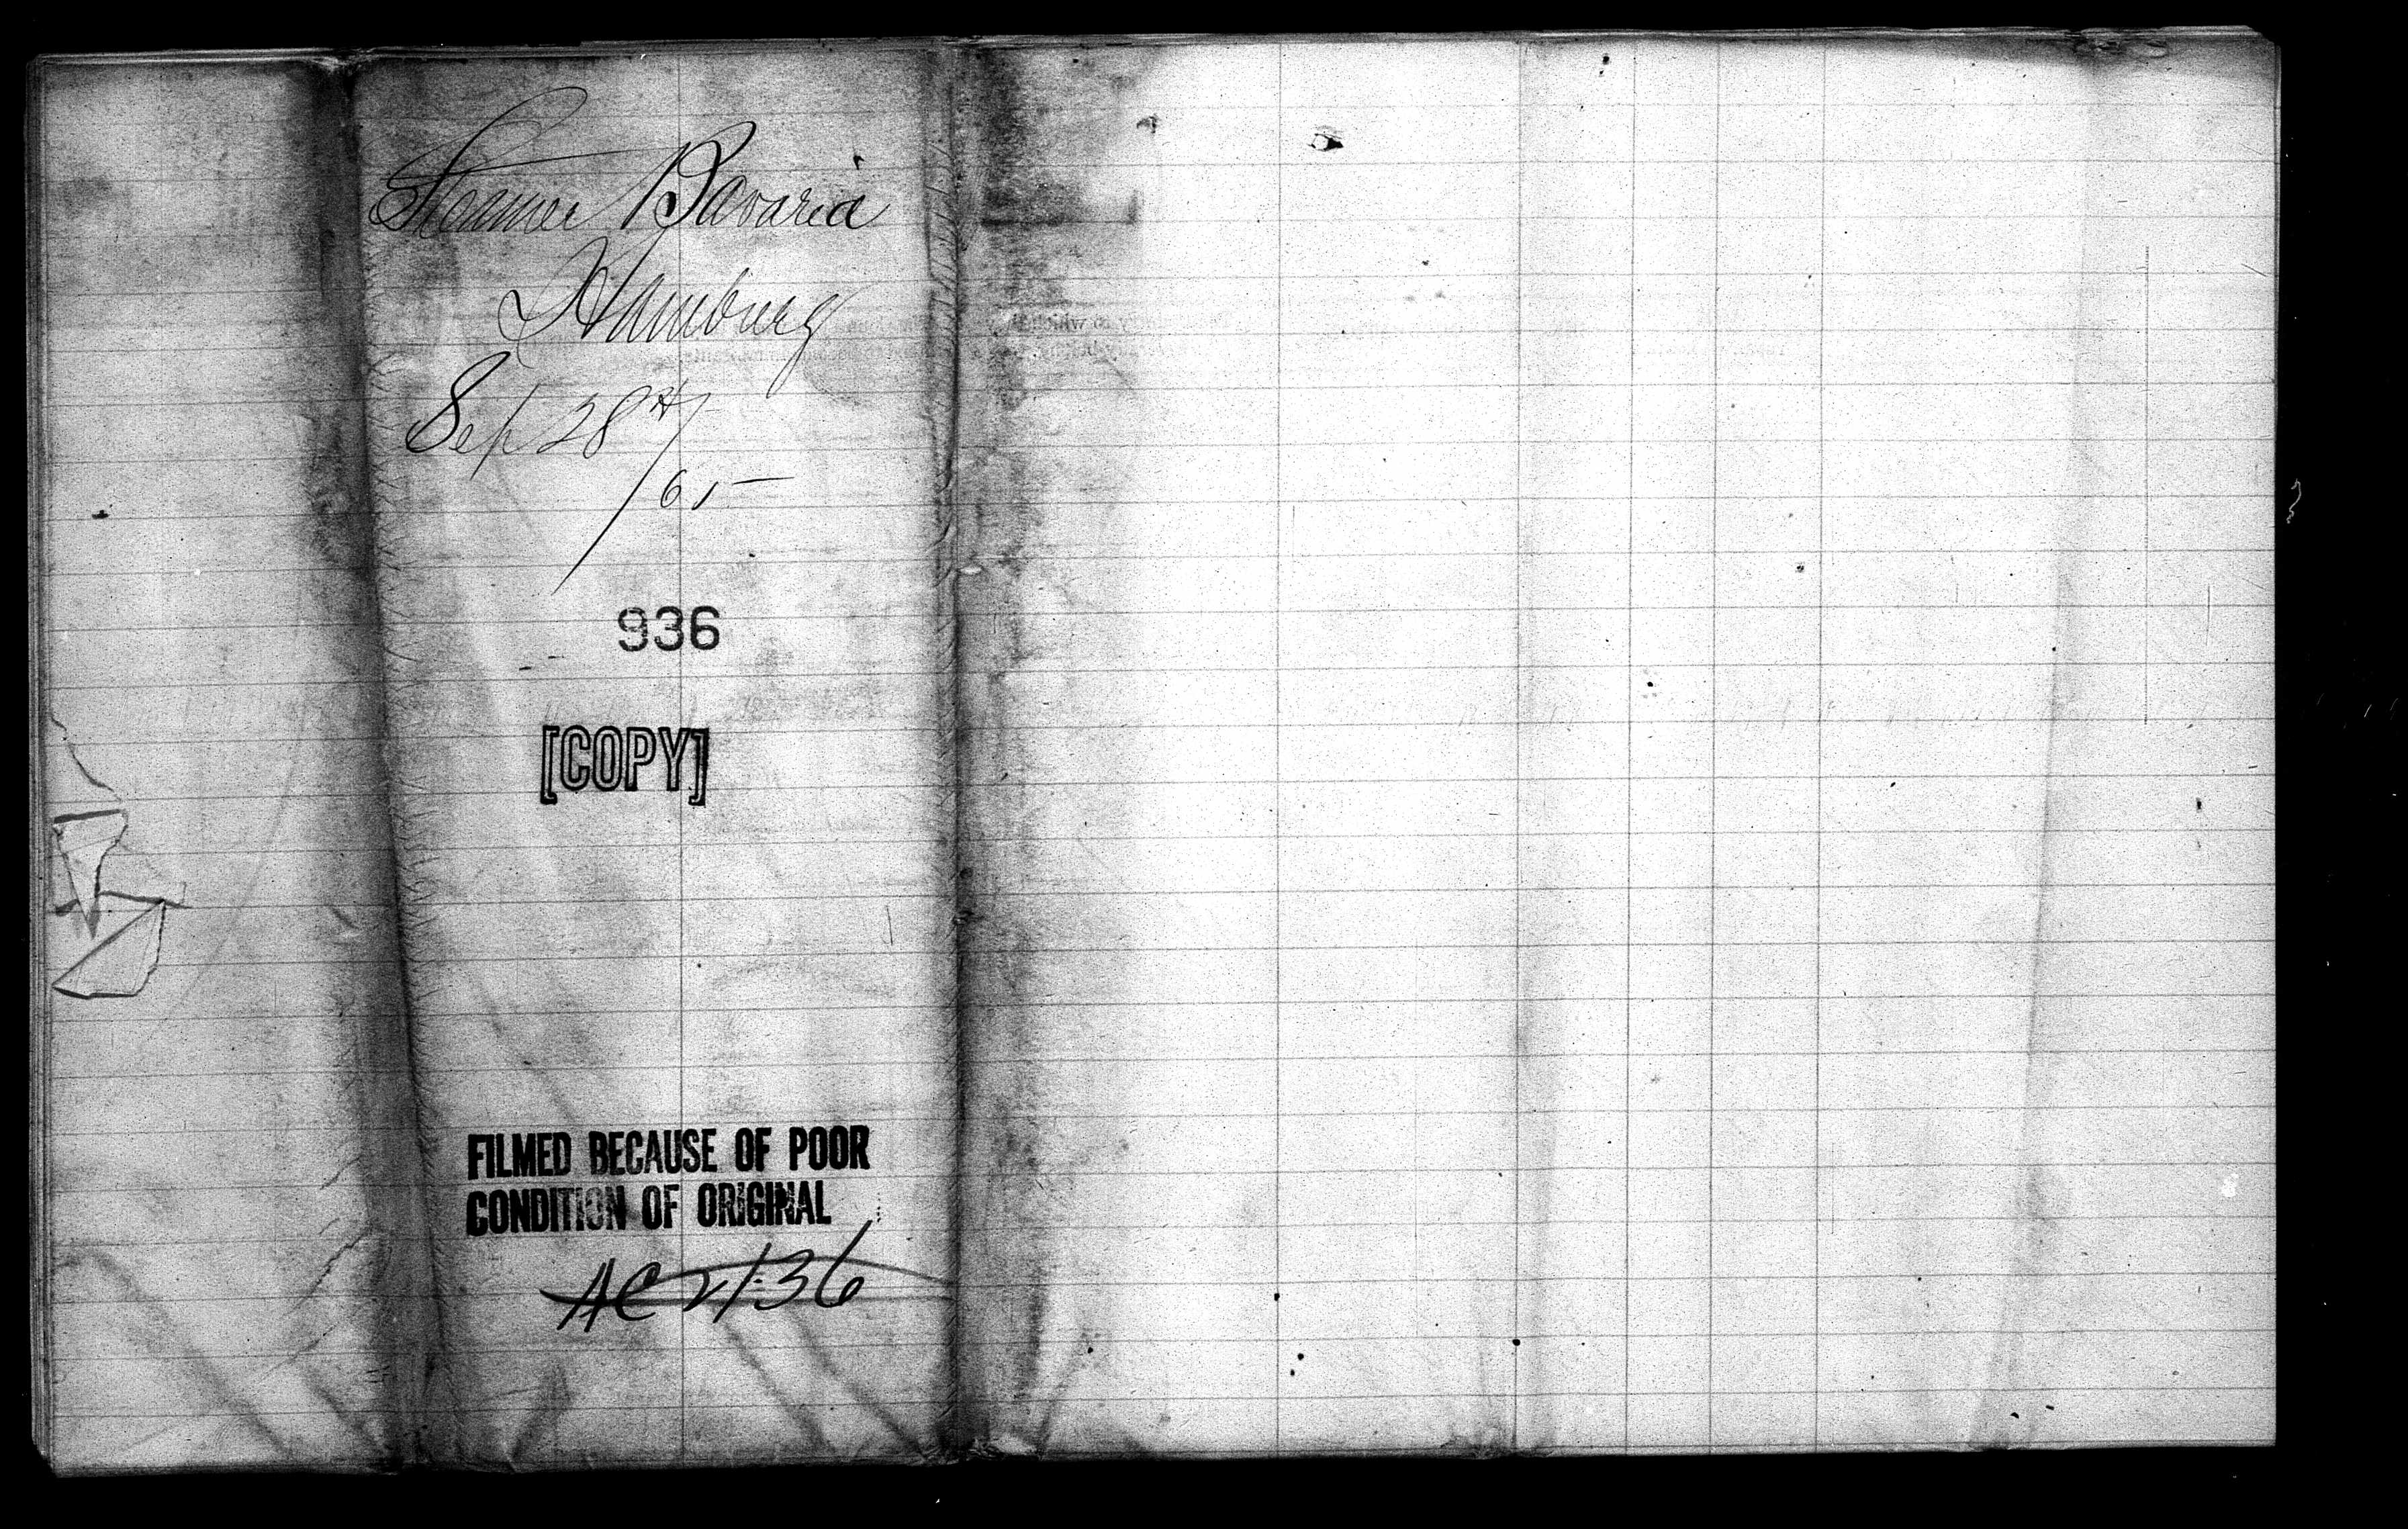 Steamer Bavaria
Hamburg
Sep 28th/
/65
936
[COPY]
FILMED BECAUSE OF POOR
CONDITION OF ORIGINAL